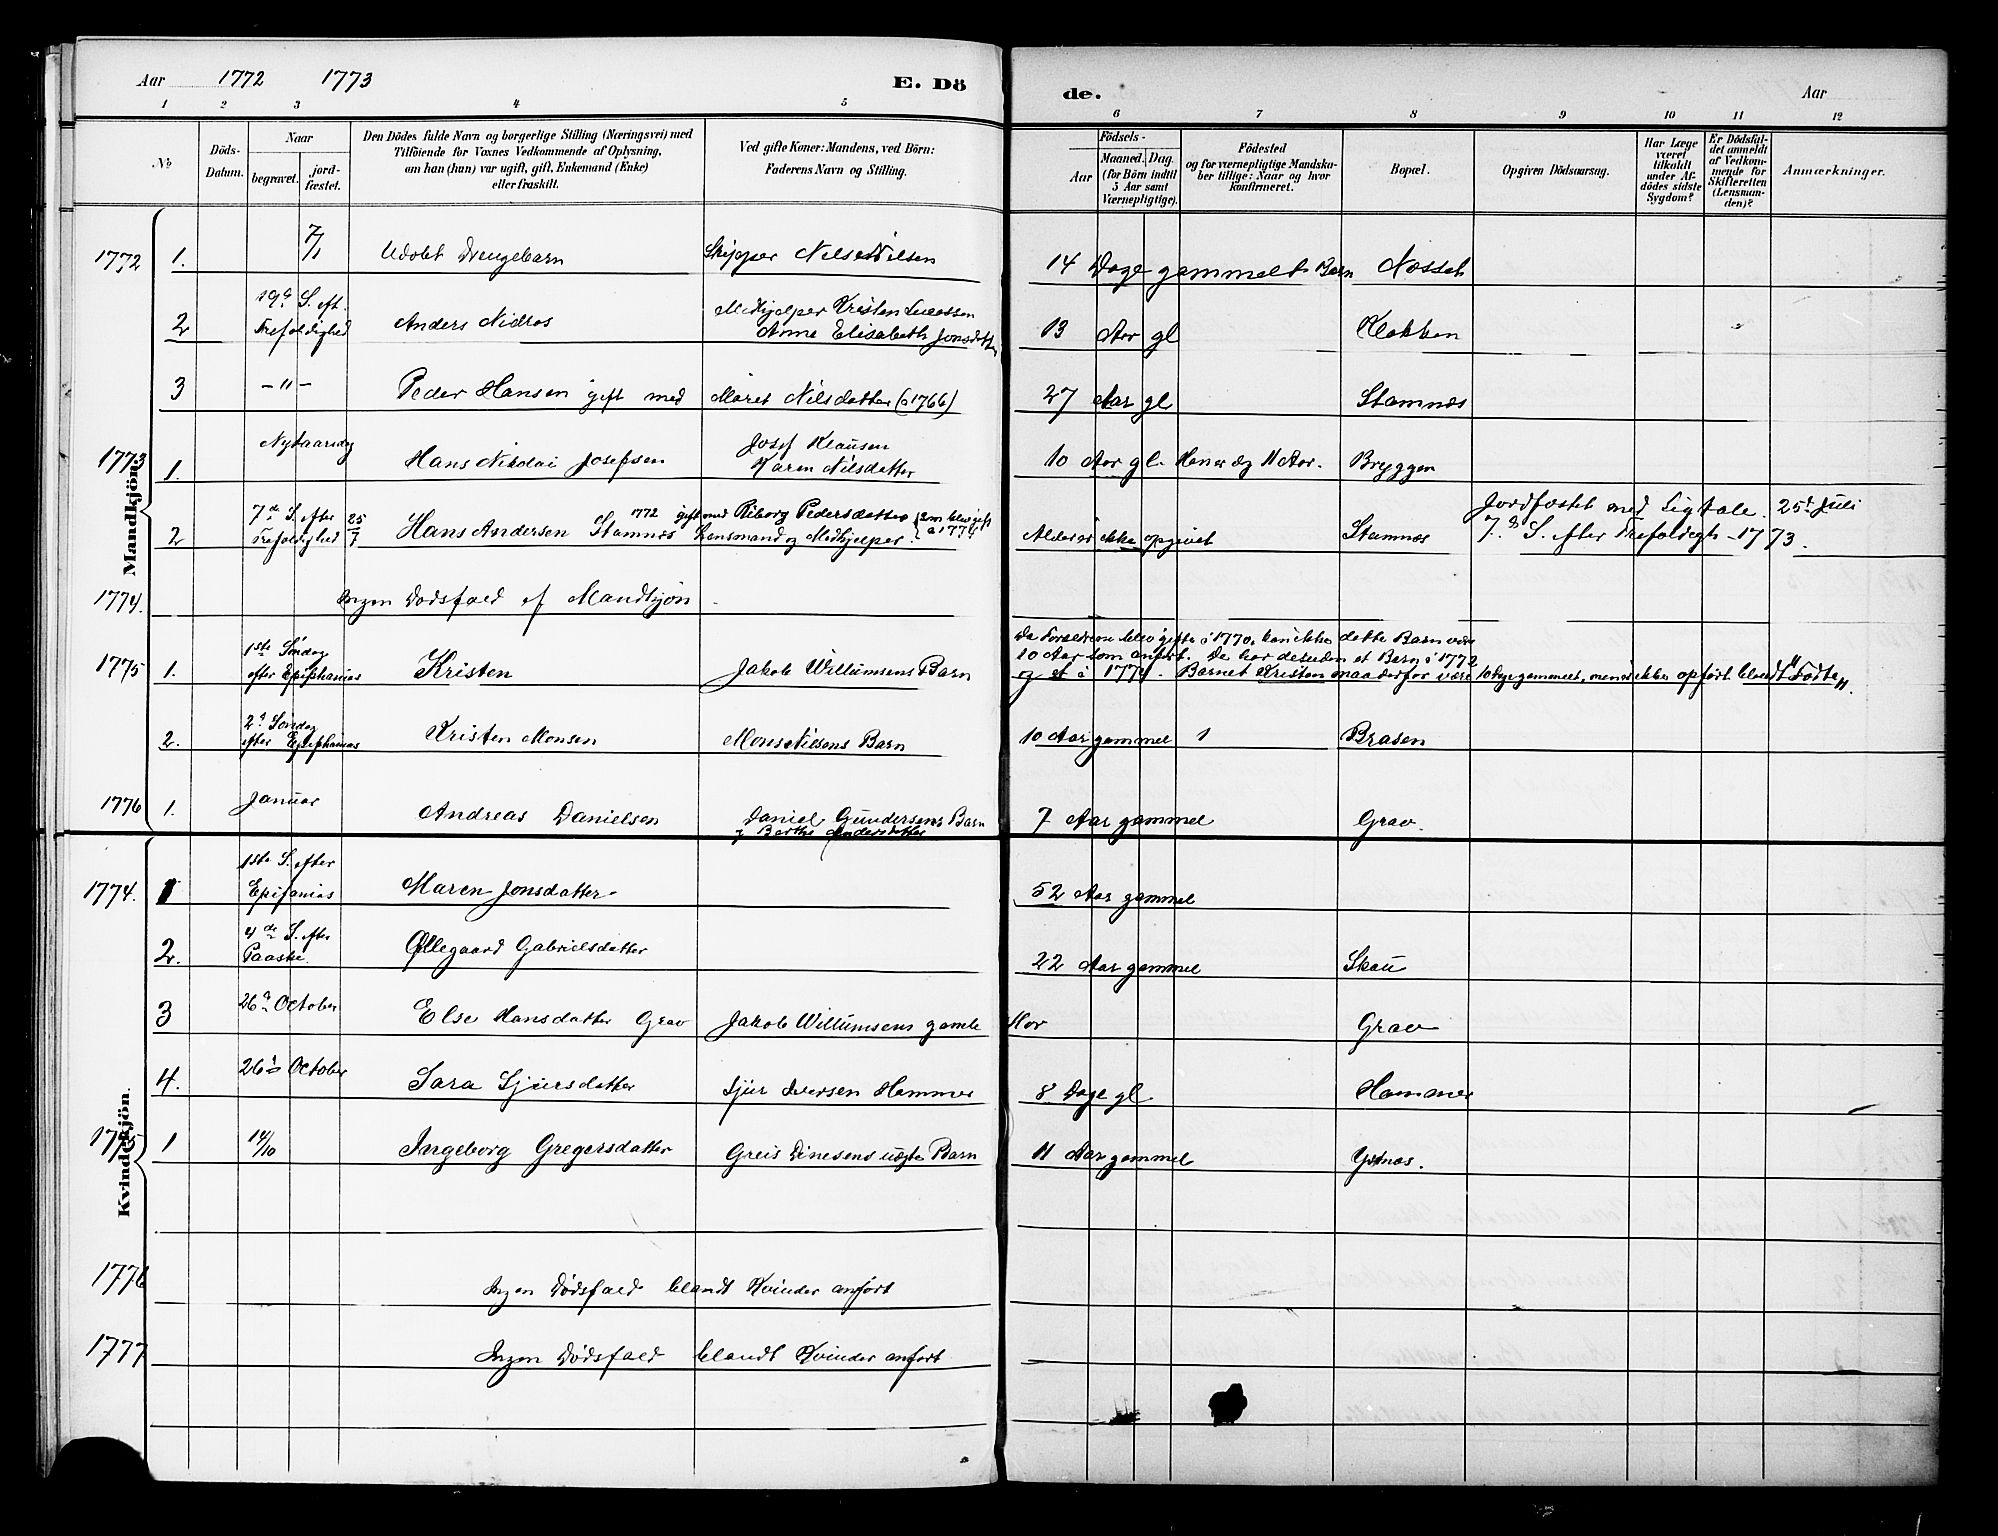 Aar 1772 1773 E. Dö de. Aar
1 2 3 4 5 6 7 8 9 10 11 12
No
Döds-Datum.
Naar
begravet.
jord-fæstet.
Den Dödes fulde Navn og borgerlige Stilling (Næringsvei) med
Tilföiende for Voxnes Vedkommende af Oplysning,
om han (hun) var ugift, gift, Enkemand (Enke)
eller fraskilt.
Ved gifte Koner: Mandens, ved Börn:
Faderens Navn og Stilling.
Födsels-
Aar
Maaned. Dag.
(for Börn indtil
5 Aar samt
Værnepligtige).
Födested
og for værnepligtige Mandska-
ber tillige: Naar og hvor
konfirmeret.
Bopæl.
Opgiven Dödsaarsag.
Har Læge
været
tilkaldt
under Af-
dödes sidste
Sygdom?
Er Dödsfal-
det anmeldt
af Vedkom-
mende for
Skifteretten
(Lensman-
den)?
Anmærkninger.
Mandkjön.
1772 1. 7/1 Udöbt Drengebarn Skipper Nils Nilsen 14 Dage gammelt Barn Næsset
2 19de S. eft. Trefoldighed Anders Nidros Medhjelper Kristen Lucassen
Anne Elisabeth Jonsdatter 13 Aar gl Klokken
3 -"- Peder Hansen gift med Maret Nilsdatter (i 1766) 27 Aar gl Stamnæs
1773 1. Nytaarsdag Hans Nikolai Josefsen Josef Klausen
Karen Nilsdatter 10 Aar gl. Han er dog 11 Aar. Bryggen
2 7de S. efter Trefoldighed 25/7 Hans Andersen Stamnæs 1772 gift med Riborg Pedersdatter (som blev gift i 1774)
Lensmand og Medhjelper. Alder er ikke opgivet Stamnæs Jordfæstet med Ligtale. 25de Juli
7de S. efter Trefoldigh - 1773.
1774. Ingen Dødsfald af Mandkjøn
1775 1. 1ste Søndag efter Epiphanias Kristen Jakob Willumsens Barn Da Forældrene blev gifte i 1770, kan ikke dette Barn være
10 Aar som anført. De har desuden et Barn i 1772
og et i 1774. Barnet Kristen maa derfor være 10 Dage gammelt, men er ikke opført blandt "Fødte".
2. 2d Søndag efter Epiphanias Kristen Monsen Mons Nilsens Barn 10 Aar gammel 1 Brasen
1776 1. Januar Andreas Danielsen Daniel Gundersens Barn
og Berthe Andersdatter 7 Aar gammel Grav.
Kvindekjön.
1774. 1 1ste S. efter Epifanias Maren Jonsdatter 52 Aar gammel
2. 4de S. efter Paaske. Øllegaard Gabrielsdatter 22 Aar gammel Skau
3 26d October Else Hansdatter Grav Jakob Willumsens gamle Mor Grav
4. 26d October Sara Sjursdatter Sjur Iversen Hammer 8 Dage gl Hammer
1775 1 14/10 Ingeborg Gregersdatter Greis Dinesens uægte Barn 11 Aar gammel Ystnæs.
1776 Ingen Dødsfald blandt Kvinder anført
1777 Ingen Dødsfald blandt Kvinder anført